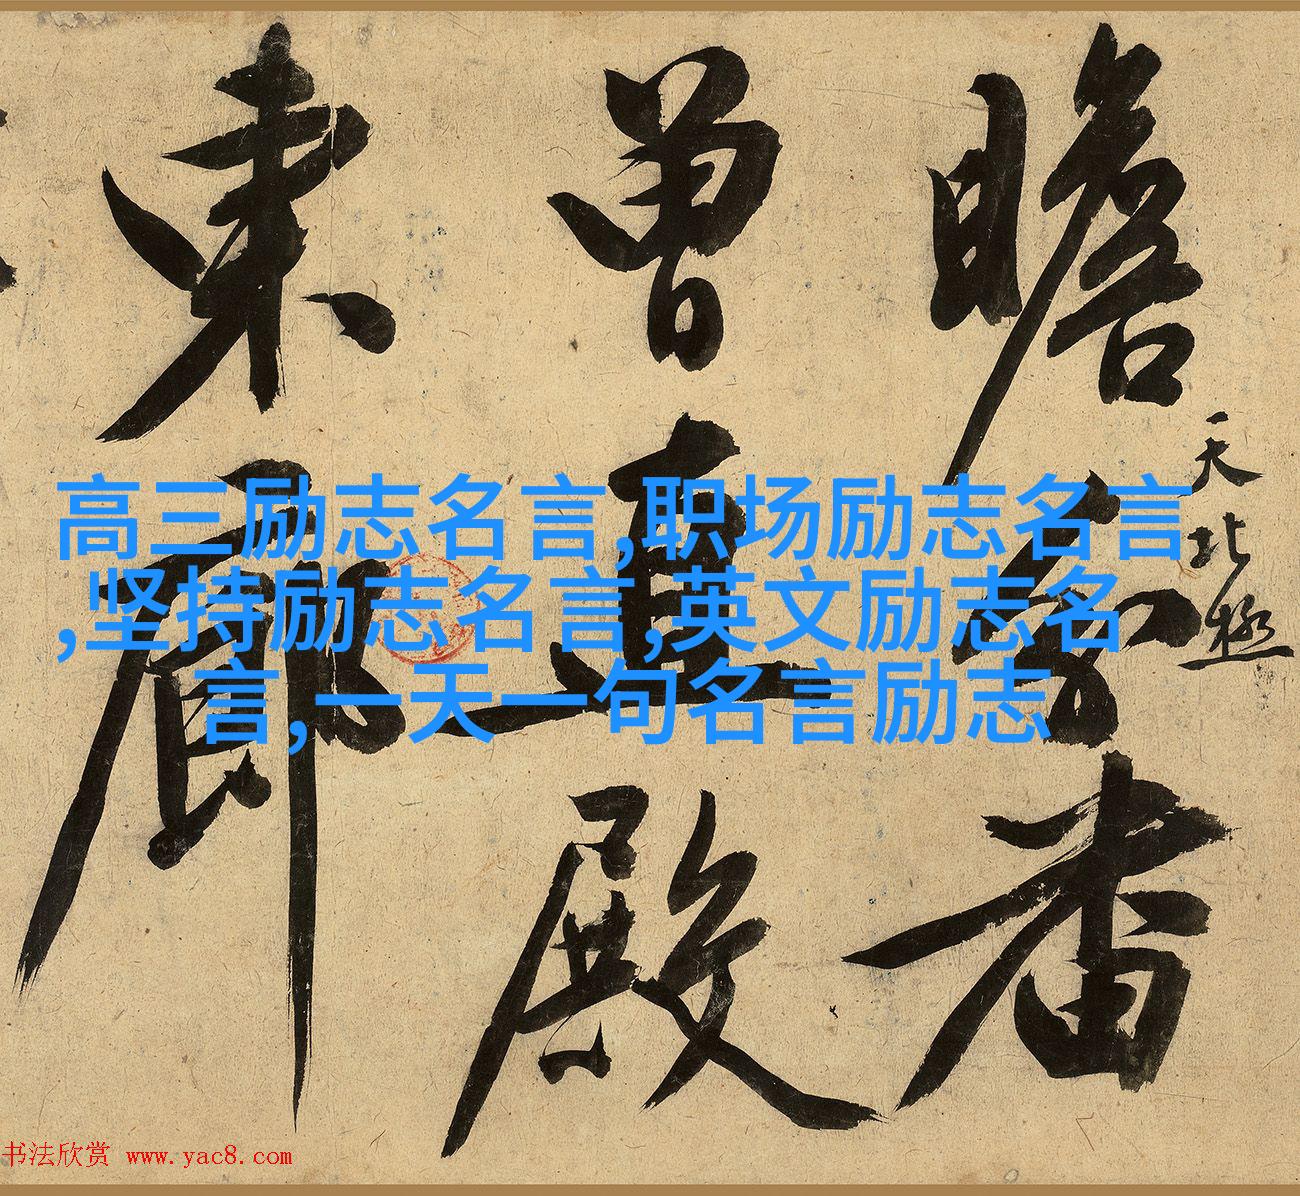 瞻
香
天北極
曾直殿
東廊
高三励志名言,职场励志名言
,坚持励志名言,英文励志名
言,一天一句名言励志
书法欣赏 www.yac8.com